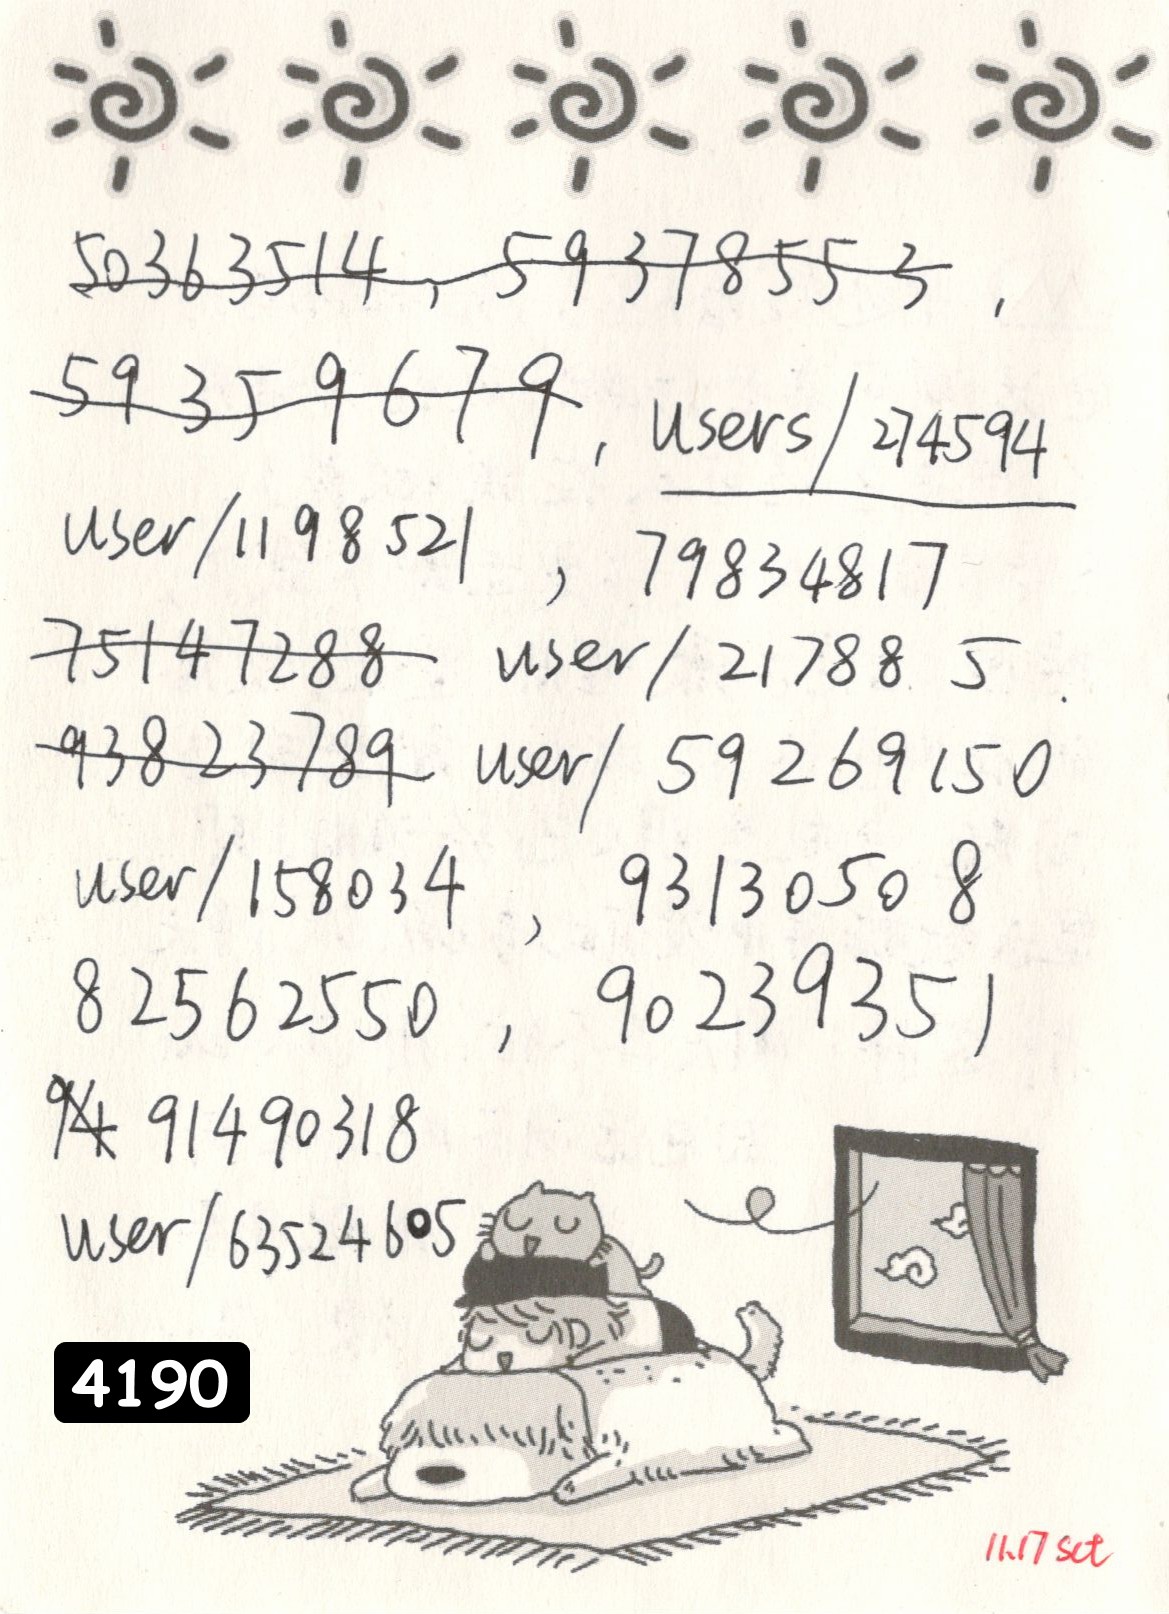 50363514, 59378553,
59359679, users/274594
user/1198521, 79834817
75147288 user/217885.
93823789 user/59269150
user/158034, 93130508
82562550, 90239351
94 91490318
user/63524605
4190
11.17 set